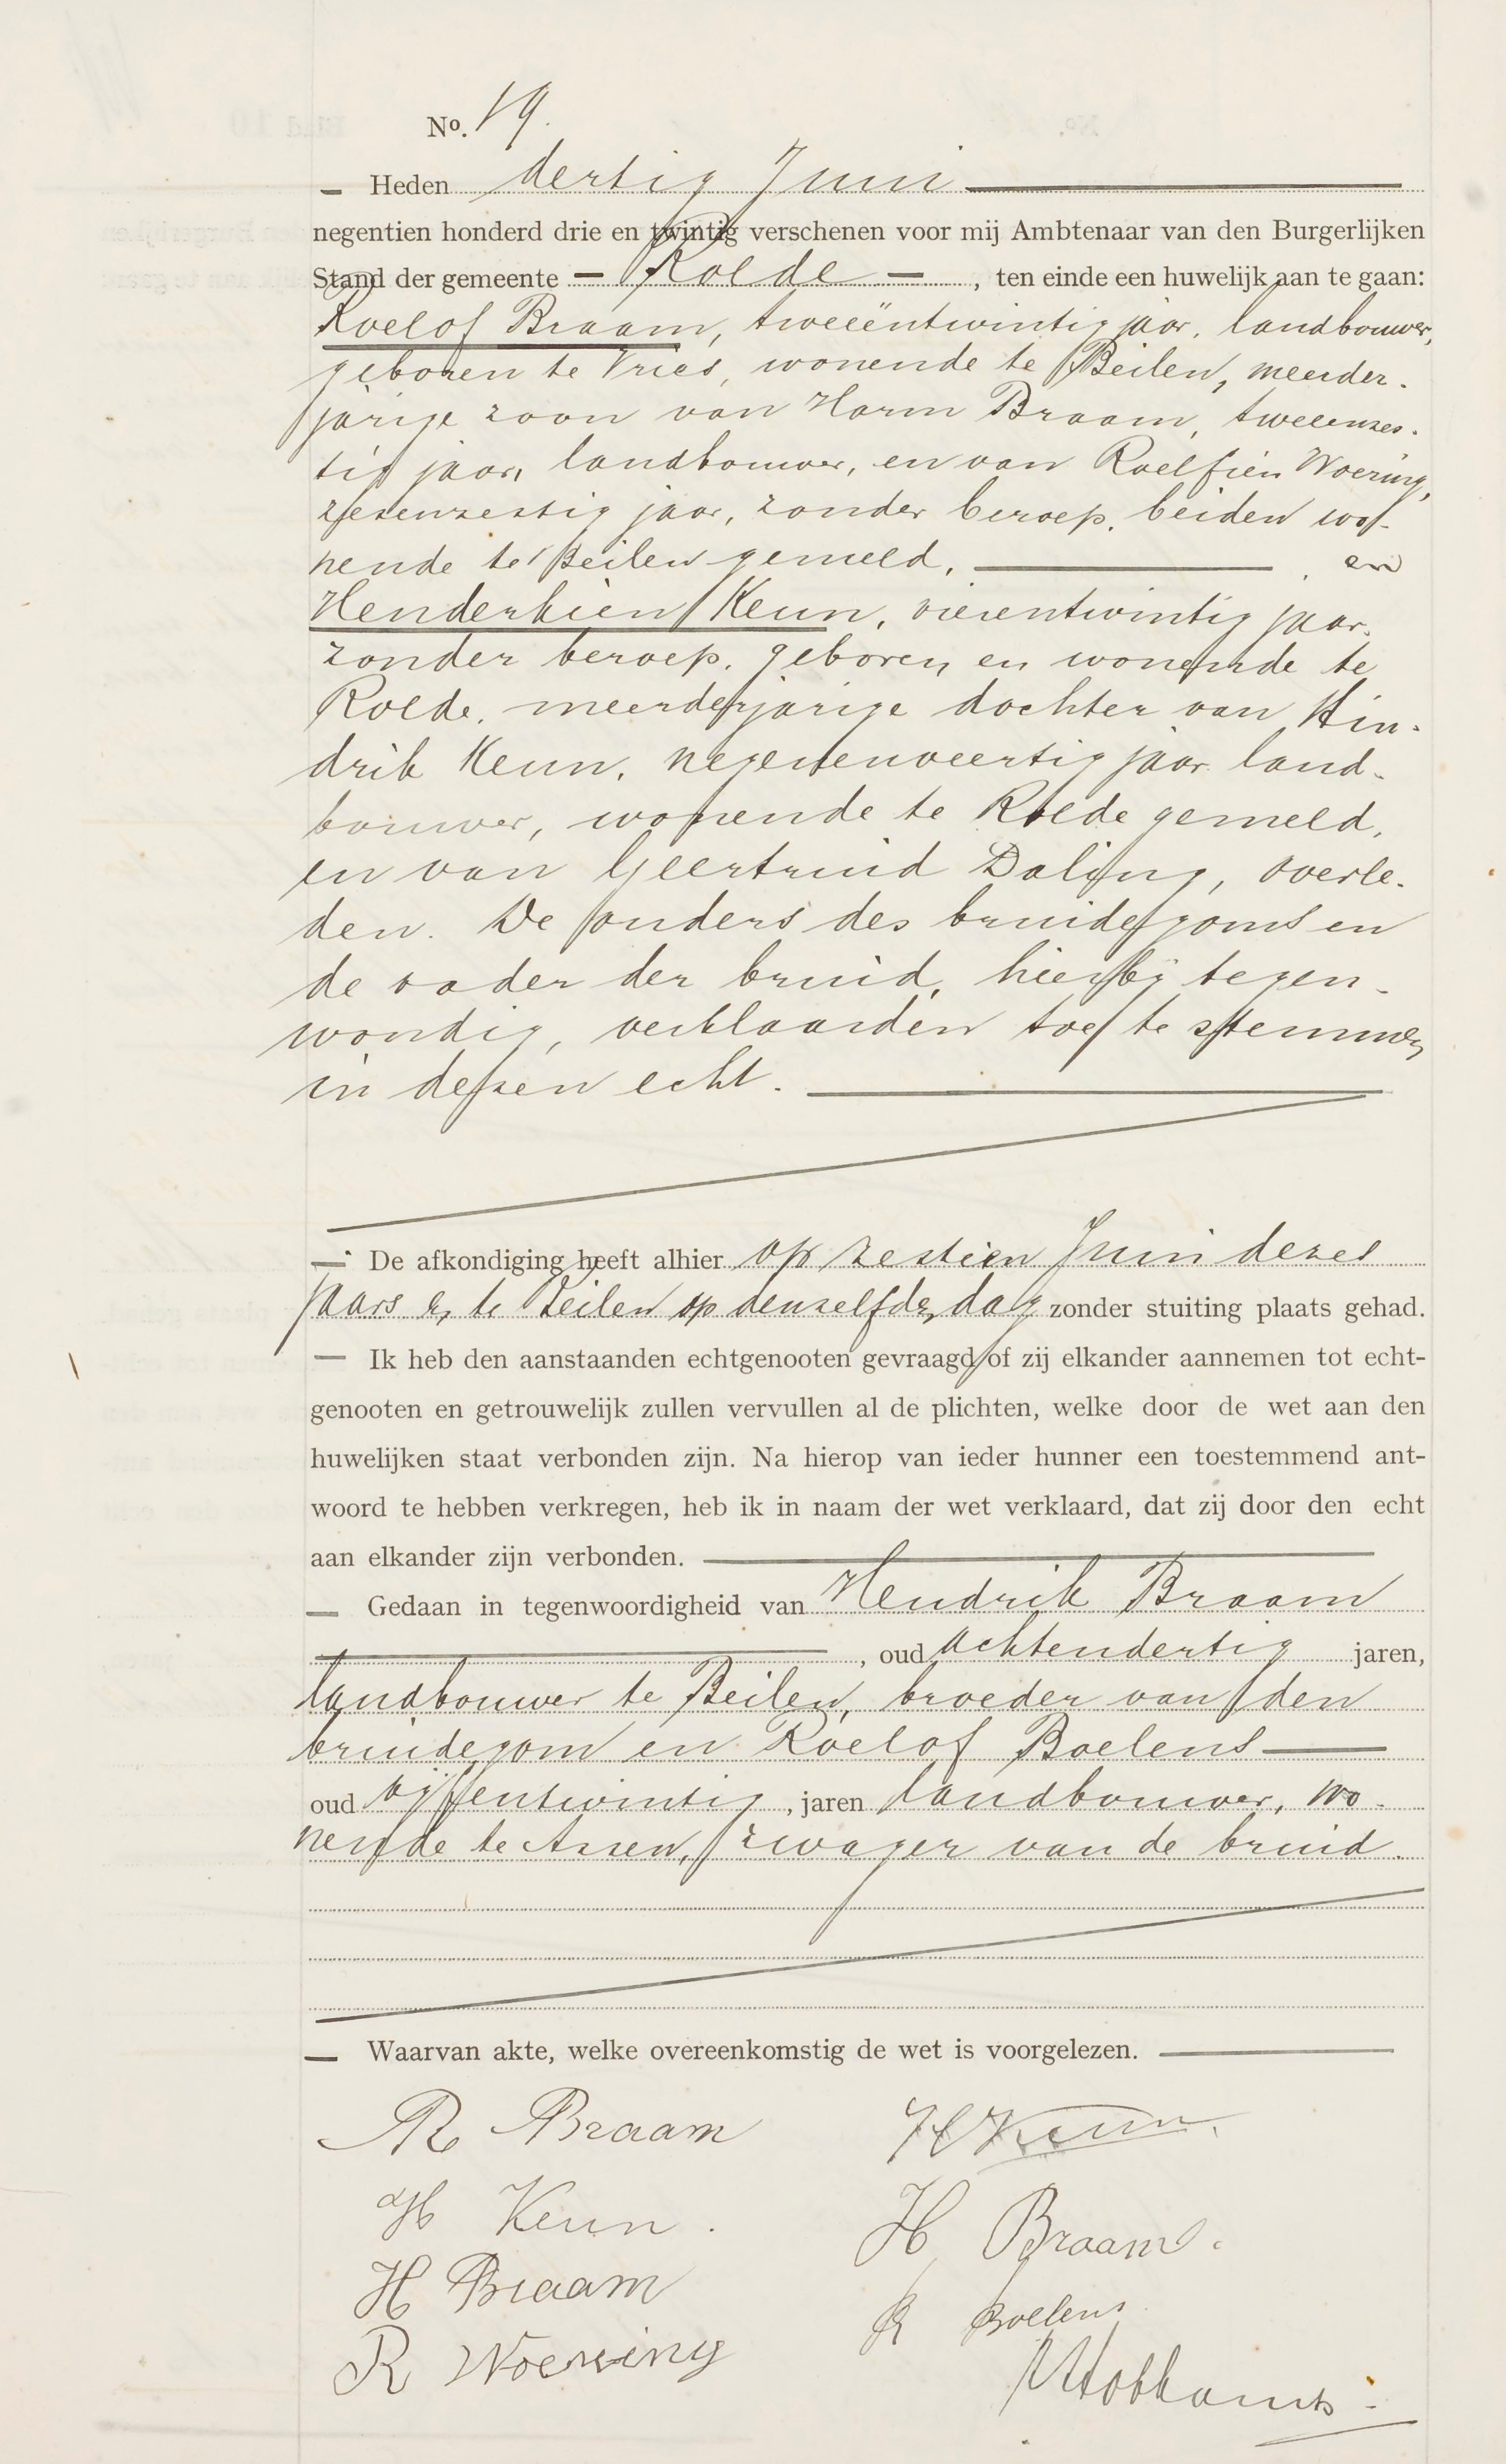 No. 19.
— Heden dertig Juni
negentien honderd drie en twintig verschenen voor mij Ambtenaar van den Burgerlijken
Stand der gemeente — Rolde — , ten einde een huwelijk aan te gaan:
Roelof Braam, tweeëntwintig jaar, landbouwer,
geboren te Vries, wonende te Beilen, meerder-
jarige zoon van Harm Braam, tweeenzes-
tig jaar, landbouwer, en van Roelfien Woering,
zesenzestig jaar, zonder beroep, beiden wo-
nende te Beilen gemeld, en
Henderkien Keun, vierentwintig jaar,
zonder beroep, geboren en wonende te
Rolde, meerderjarige dochter van Hin-
drik Keun, negenenveertig jaar land-
bouwer, wonende te Rolde gemeld,
en van Geertruid Daling, overle-
den. De ouders des bruidegoms en
de vader der bruid, hierbij tegen-
woordig, verklaarden toe te stemmen
in dezen echt.
— De afkondiging heeft alhier op zestien Juni dezes
jaars en te Beilen op denzelfden dag zonder stuiting plaats gehad.
— Ik heb den aanstaanden echtgenooten gevraagd of zij elkander aannemen tot echt-
genooten en getrouwelijk zullen vervullen al de plichten, welke door de wet aan den
huwelijken staat verbonden zijn. Na hierop van ieder hunner een toestemmend ant-
woord te hebben verkregen, heb ik in naam der wet verklaard, dat zij door den echt
aan elkander zijn verbonden.
— Gedaan in tegenwoordigheid van Hendrik Braam
, oud achtendertig jaren,
landbouwer te Beilen, broeder van den
bruidegom en Roelof Boelens
oud vijfentwintig, jaren landbouwer, wo-
nende te Assen, zwager van de bruid.
— Waarvan akte, welke overeenkomstig de wet is voorgelezen.
R Braam H Keun.
H Keun. H Braam.
H Braam R Boelens
R Woering